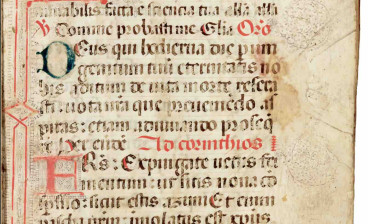 mirabilis facta e sciencia tua alla alla
Domine probasti me Glia Oro
Deus qui hodierna die
genitum tuu eternitatis no
bis aditum de uita morte resera
sti: uota nra que preueniedo as
piras: etiam adiuuando proseq
re Per eunde Ad corinthios
Frs: Expurgate vetus fer
mentum: ut sitis noua
sicut estis azimi Et enim
pascha nrm: imolatus est xpus